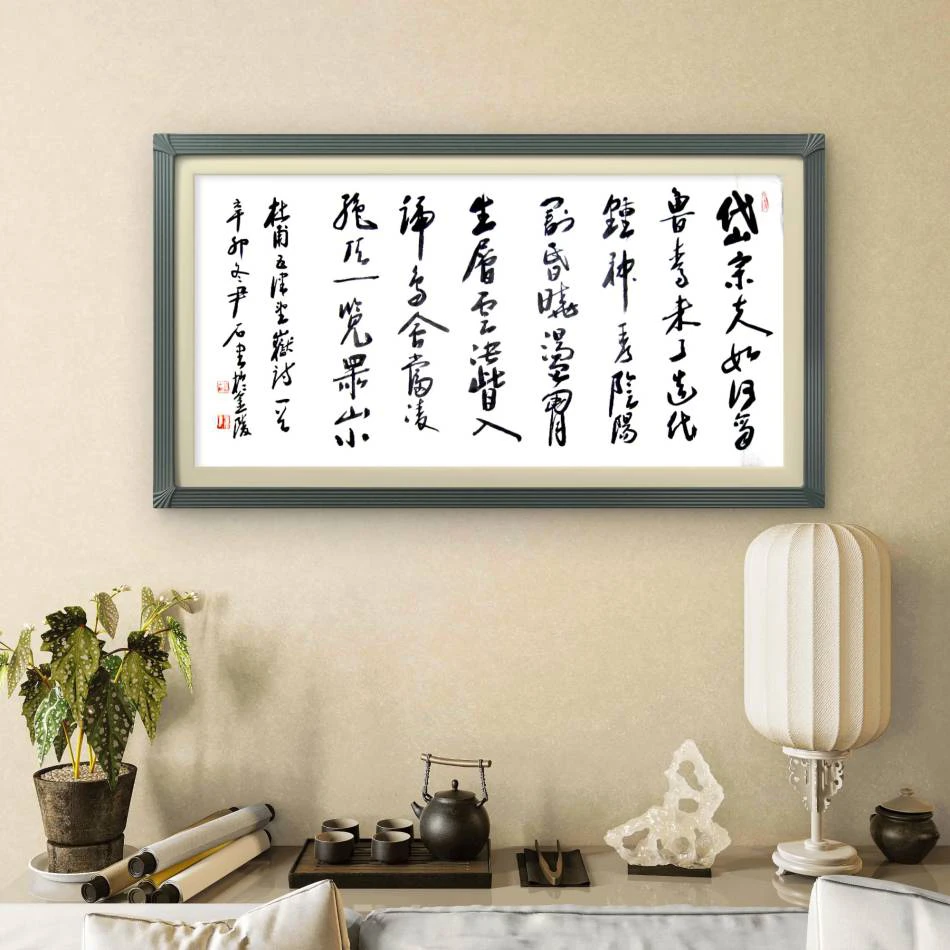 岱宗夫如何齊
魯青未了造化
鍾神秀陰陽
割昏曉盪胷
生層雲決眥入
歸鳥會當凌
絕頂一覽眾山小
杜甫五律望嶽詩一首
辛卯冬尹石書於金陵